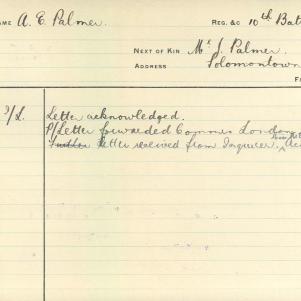 NAME A. E. Palmer. REG. &C 10th Bat
NEXT OF KIN Mr J. Palmer.
ADDRESS Solomontown
F
Letter acknowledged.
P/Letter forwarded Commrs London
Further Letter received from Inquirer. Ack